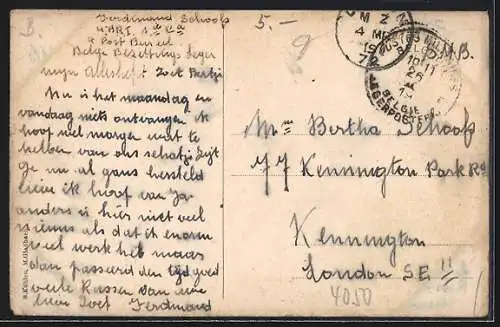 B.
5.-
9
Ferdinand Schoofs
4 BRI. 1 Ca
Post Bureel
Belge Bezettings Leger
mijn allerliefst Zoet Bertje
Nu is het maandag en
vandaag niets ontvangen ik
hoop wel morgen want te
helpen van ons schatje zijt
ge nu al gans hersteld
lieve ik hoop van Ja
anders is hier niet veel
nieuws als dat ik enorm
veel werk heb maar
dan passeerd den tijd goed
vele Kussen van uw
lieve Zoet Ferdinand
POSTES MILITAIRES
BELGIQUE
10-11
26
BELGIE
LEGERPOSTERIJ
M.B.
Mme Bertha Schoofs
77 Kennington Park Rd
Kennington
London S.E 11
4050
M.Gladbach